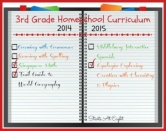 3rd Grade Homeschool Curriculum
2014 2015
Growing with Grammar
Growing with Spelling
Singapore Math
Trail Guide to
World Geography
Middlebury Interactive
Spanish
Apologia Exploring
Creation with Chemistry
& Physics